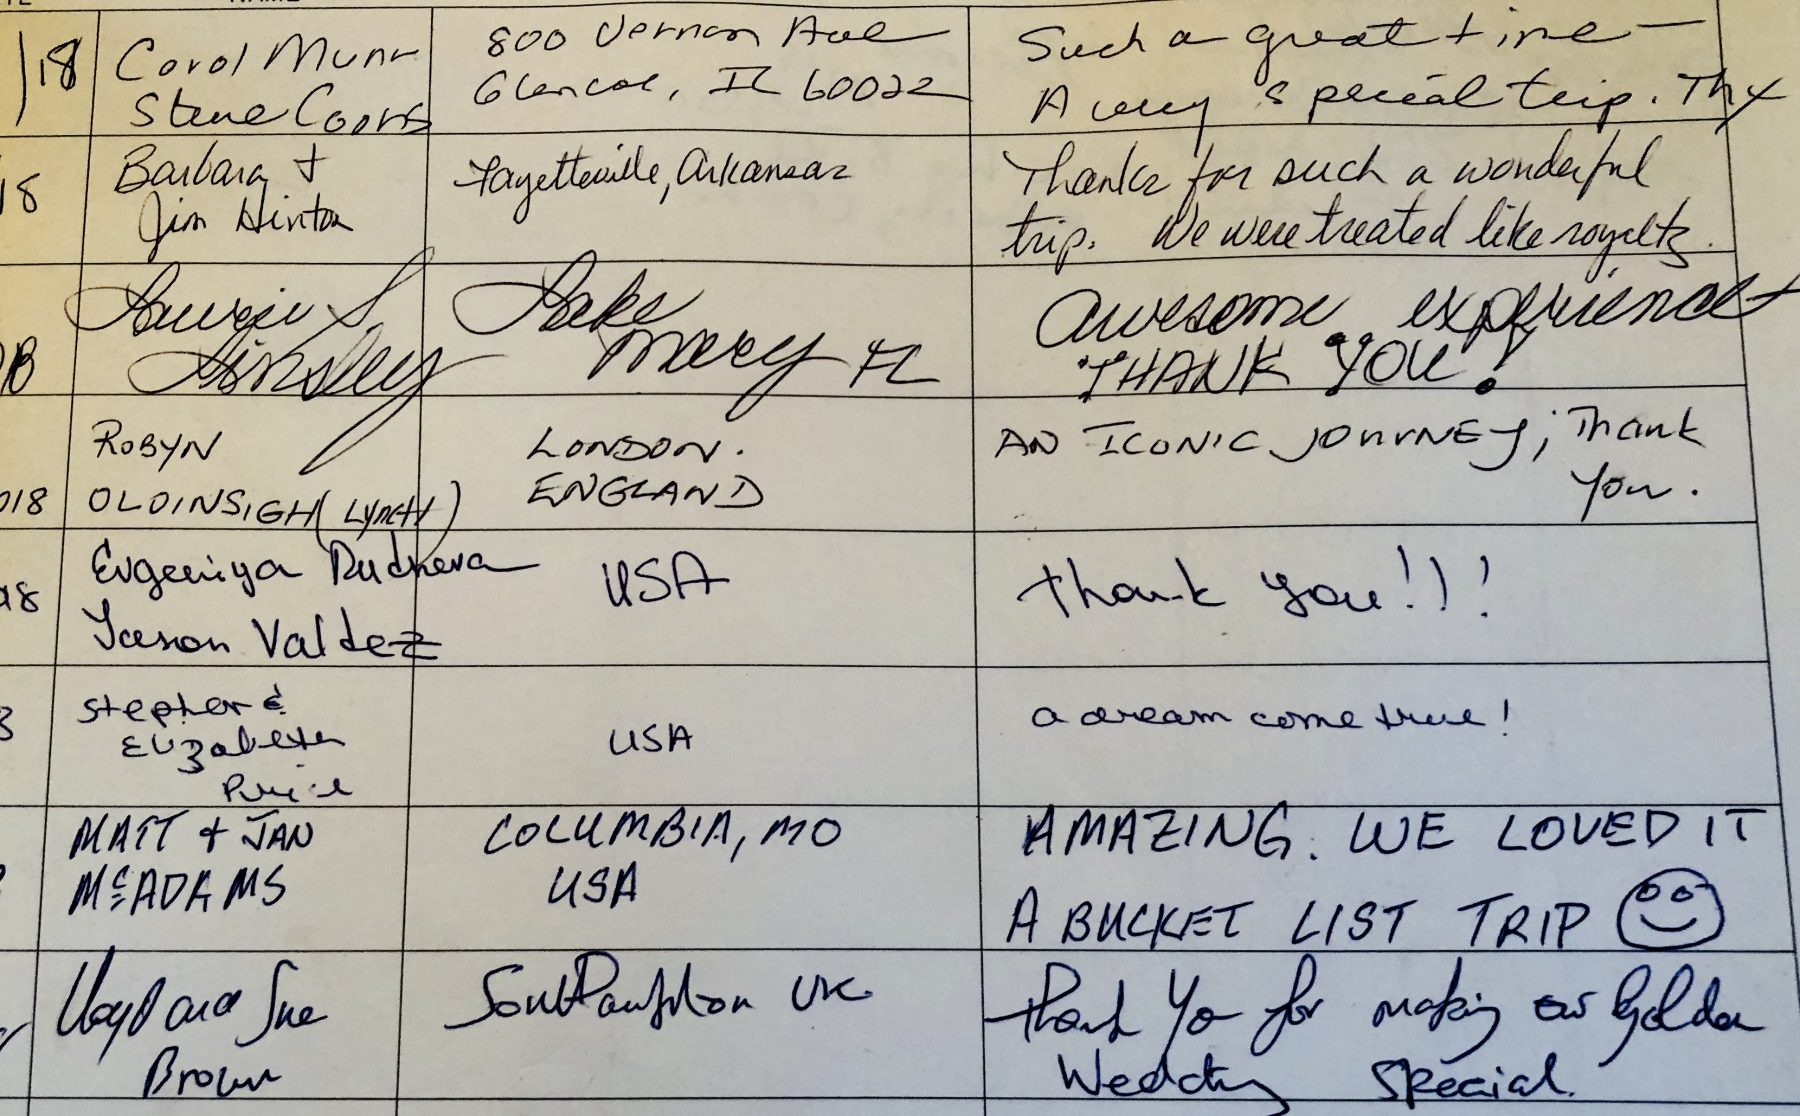 NAME
18 Carol Munr 800 Vernon Ave Such a great time —
Steve Coons Glencoe, IL 60022 A very special trip. Thx
18 Barbara + Fayetteville, Arkansas Thanks for such a wonderful
Jim Hinton trip. We were treated like royalty.
Laurie S. Lake awesome experience
Tinsley Mary FL THANK YOU!
ROBYN LONDON. AN ICONIC JOURNEY; Thank
018 OLDINSIGH (LYNCH) ENGLAND You.
Evgeniya Rudneva USA Thank you!!!
18 Jason Valdez
3 Stephen & a dream come true!
Elizabeth USA
Price
MATT + JAN COLUMBIA, MO AMAZING. WE LOVED IT
McADAMS USA A BUCKET LIST TRIP
Lloyd and Sue Southampton UK Thank You for making our Golden
Brown Wedding Special.